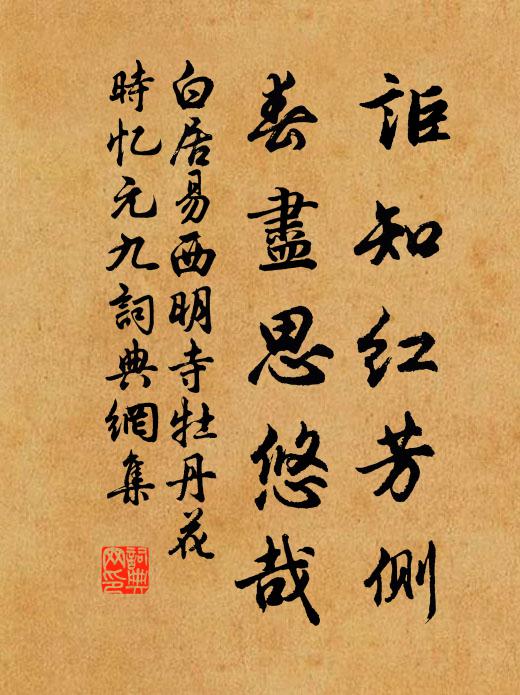 詎知红芳側
春盡思悠哉
白居易西明寺牡丹花
時忆元九詞典網集
詞典网印